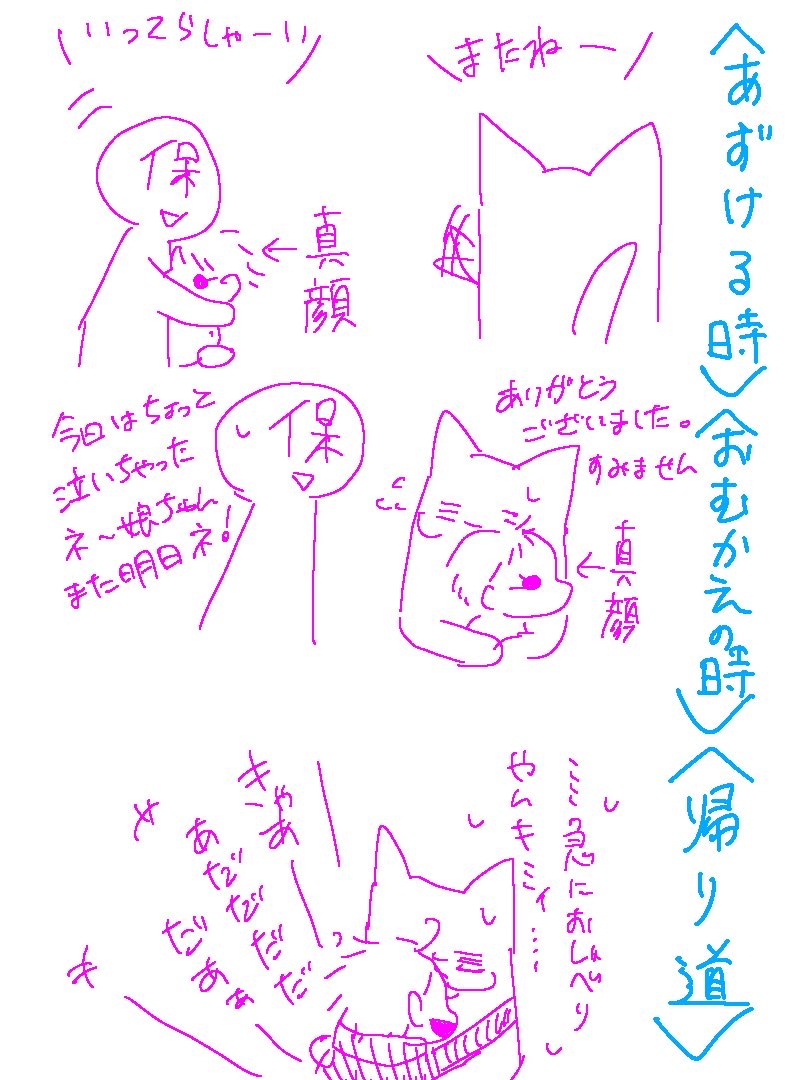 〈あずける時〉
またねー
いってらしゃーい
保
真顔
〈おむかえの時〉
ありがとう
ございました。
すみません
真顔
保
今日はちょって
泣いちゃった
ネ〜娘ちゃん
また明日ネ!
〈帰り道〉
……急におしゃべり
やんキミィ……
キャあ
あだだだだ
だあぁ
キ